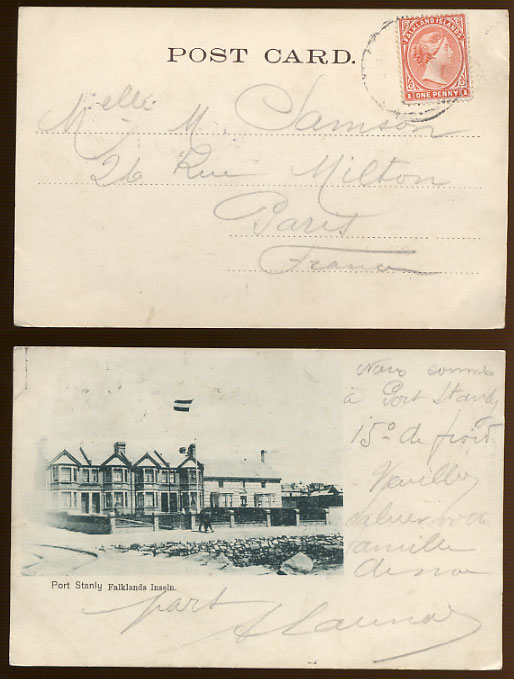 POST CARD.
FALKLAND ISLANDS
1 ONE PENNY 1
Melle M. Samson
26 Rue Milton
Paris
France
Nous sommes
à Port Stanly
15° de froid.
Veuillez
saluer votre
famille
de ma
part
Port Stanly Falklands Inseln.